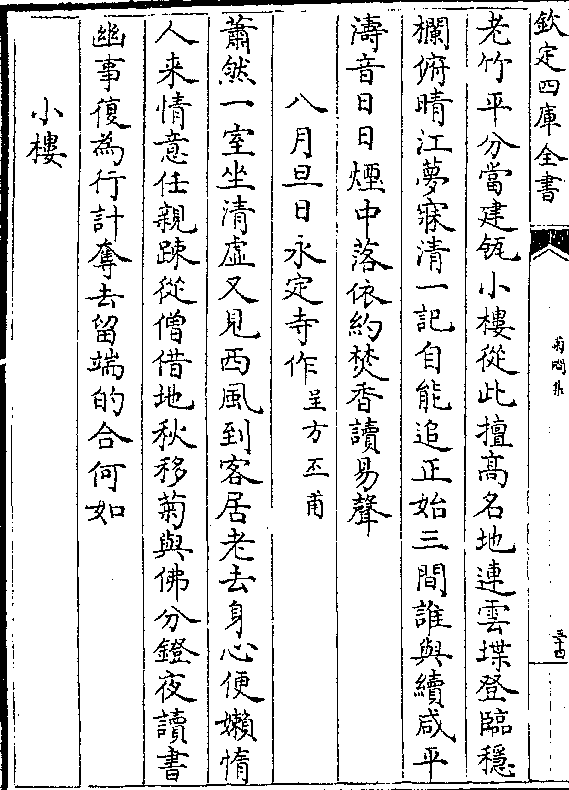 欽定四庫全書
菊磵集
三十四
老竹平分當建瓴小樓從此擅髙名地連雲堞登臨穩
欄俯晴江夢寐清一記自能追正始三間誰與續咸平
濤音日日煙中落依約焚香讀易聲
八月旦日永定寺作呈方丕甫
蕭然一室坐清虛又見西風到客居老去身心便嬾惰
人来情意任親踈從僧借地秋移菊與佛分鐙夜讀書
幽事復為行計奪去留端的合何如
小樓